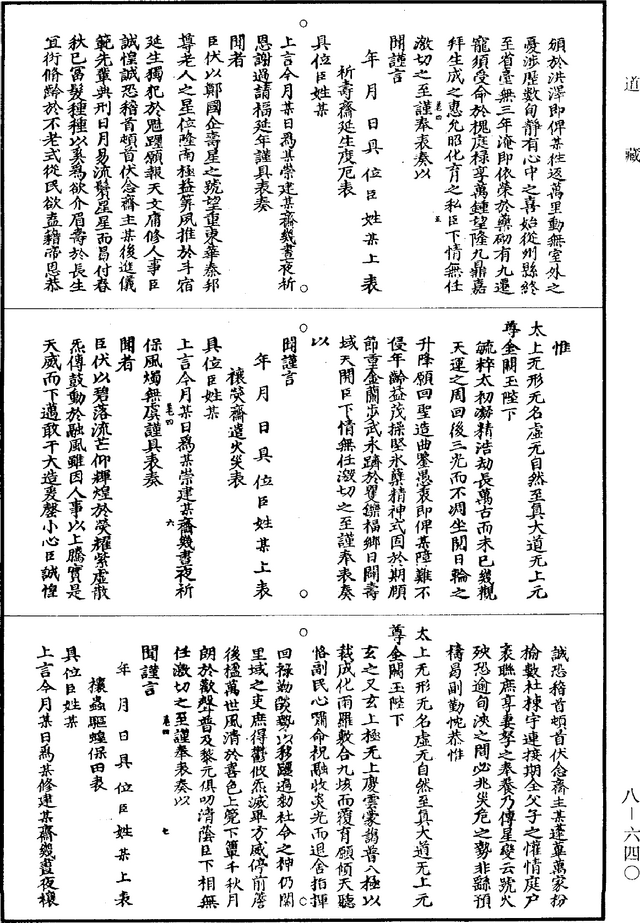 道藏
頒於洪澤即俾某往返萬里動無室外之
憂涉歷數旬靜有心中之喜始從州縣終
至省臺無三年淹即依榮於藥砌有九遷
寵須受命於槐庭祿享萬鍾望隆九鼎嘉
拜生成之惠允昭化育之私臣下情無任
激切之至謹奉表奏以
聞謹言
年月日具位臣姓某上表
祈壽齋延生度厄表
具位臣姓某
上言今月某日為某崇建某齋幾晝夜祈
恩謝過請福延年謹具表奏
聞者
臣伏以鄭國企壽星之號望重東華泰邦
尊老人之星位隆南極益筭夙推於斗宿
延生獨犯於魁躔願報天文庸修人事臣
誠惶誠恐稽首頓首伏念齋主某後進儀
範先輩典刑日月易流鬢星星而昌付春
秋已富髮種種以奚為欲介眉壽於長生
宜衍脩齡於不老式從民欲盍藉帝恩恭
惟
太上無形無名虛無自然至真大道無上元
尊金闕玉陛下
毓粹太初凝精浩劫長萬古而未已幾觀
天運之周回後三光而不凋坐閱日輪之
升降願回聖造曲鑒愚衷即俾某障難不
侵年齡益茂操堅冰蘗精神式固於期頤
節重金蘭步武永躋於耄耋福鄉日闢壽
域天開臣下情無任激切之至謹奉表奏
以
聞謹言
年月日具位臣姓某上表
禳熒齋遣火災表
具位臣姓某
上言今月某日為某崇建某齋幾晝夜祈
保風燭無虞謹具表奏
聞者
臣伏以碧落流芒仰輝煌於熒耀紫虛散
炁傳鼓動於融風雖因人事以上騰實是
天威而下遘敢干大造爰罄小心臣誠惶
誠恐稽首頓首伏念齋主某蓬蓽萬家枌
榆數社棟宇連接期全父子之懽情庭戶
衷聯庶享妻孥之奉養乃傳星變云號火
殃恐逾旬浹之間必兆災危之勢非繇預
禱曷副勤忱恭惟
太上無形無名虛無自然至真大道無上元
尊金闕玉陛下
玄之又玄上極無上慶雲蒙謁普八極以
裁成化雨羅敷合九垓而覆育願傾天聽
恪副民心嘯命祝融收炎光而退舍指揮
回祿勑燄勢以移躔過勑社令之神仍關
里域之吏庶得鬱攸炁滅畢方威停前簷
後楹萬世風清於喜色上筦下簟千秋月
朗於歡聲普及黎元俱叨清蔭臣下相無
任激切之至謹奉表奏以
聞謹言
年月日具位臣姓某上表
禳蟲驅蝗保田表
具位臣姓某
上言今月某日為某修建某齋幾晝夜禳
卷四 五
卷四 六
卷四 七
八—六四〇